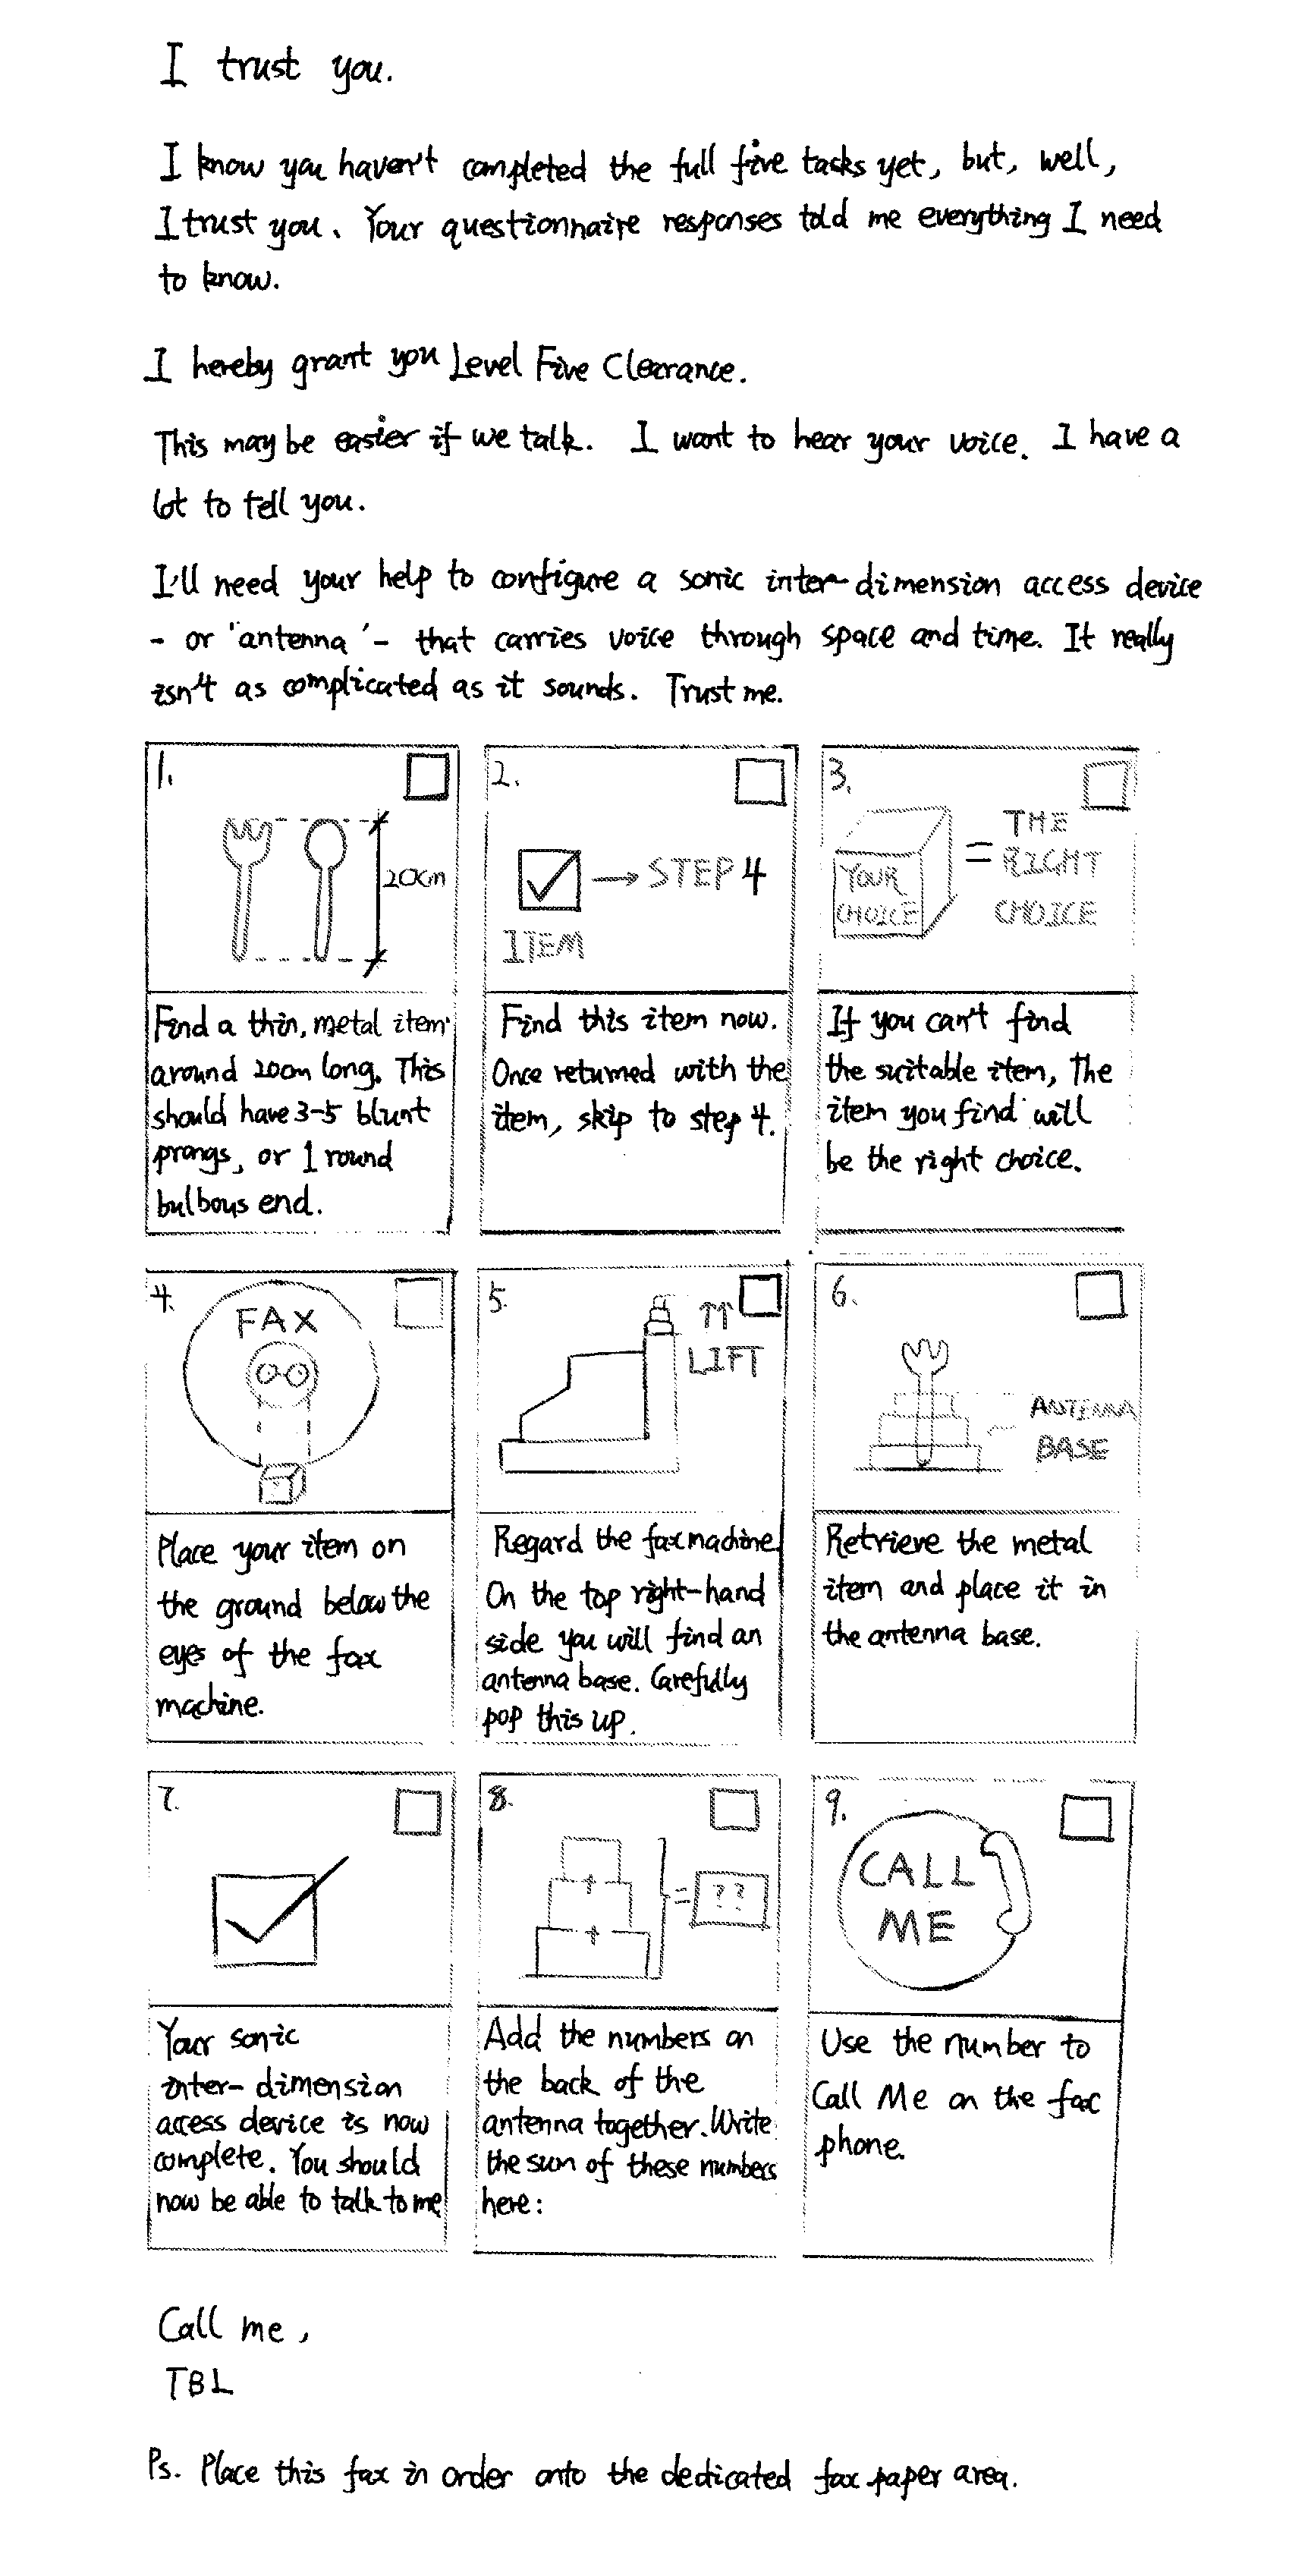 I trust you.
I know you haven't completed the full five tasks yet, but, well,
I trust you. Your questionnaire responses told me everything I need
to know.
I hereby grant you Level Five Clearance.
This may be easier if we talk. I want to hear your voice. I have a
lot to tell you.
I'll need your help to configure a sonic inter-dimension access device
- or 'antenna' - that carries voice through space and time. It really
isn't as complicated as it sounds. Trust me.
1.
20cm
Find a thin, metal item
around 20cm long. This
should have 3-5 blunt
prongs, or 1 round
bulbous end.
2.
→ STEP 4
ITEM
Find this item now.
Once returned with the
item, skip to step 4.
3.
YOUR
CHOICE
=
THE
RIGHT
CHOICE
If you can't find
the suitable item, The
item you find will
be the right choice.
4.
FAX
Place your item on
the ground below the
eyes of the fax
machine.
5.
↑↑
LIFT
Regard the fax machine.
On the top right-hand
side you will find an
antenna base. Carefully
pop this up.
6.
ANTENNA
BASE
Retrieve the metal
item and place it in
the antenna base.
7.
Your sonic
inter-dimension
access device is now
complete. You should
now be able to talk to me
8.
+
+
= ??
Add the numbers on
the back of the
antenna together. Write
the sum of these numbers
here:
9.
CALL
ME
Use the number to
Call Me on the fax
phone.
Call me,
TBL
Ps. Place this fax in order onto the dedicated fax paper area.